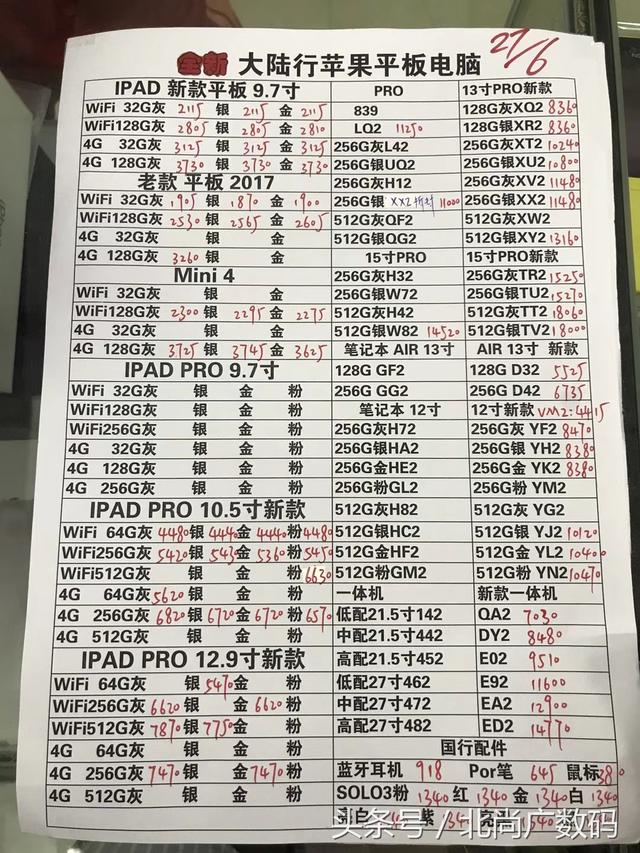 全新 大陆行苹果平板电脑 27/6
IPAD 新款平板 9.7寸
WiFi 32G灰 2115 银 2115 金 2115
WiFi128G灰 2805 银 2805 金 2810
4G 32G灰 3125 银 3125 金 3125
4G 128G灰 3730 银 3730 金 3730
老款 平板 2017
WiFi 32G灰 1905 银 1870 金 1900
WiFi128G灰 2530 银 2565 金 2605
4G 32G灰 银 金
4G 128G灰 3260 银 金
Mini 4
WiFi 32G灰 银 金
WiFi128G灰 2300 银 2295 金 2275
4G 32G灰 银 金
4G 128G灰 3725 银 3745 金 3625
IPAD PRO 9.7寸
WiFi 32G灰 银 金 粉
WiFi128G灰 银 金 粉
WiFi256G灰 银 金 粉
4G 32G灰 银 金 粉
4G 128G灰 银 金 粉
4G 256G灰 银 金 粉
IPAD PRO 10.5寸新款
WiFi 64G灰 4480 银 4440 金 4440 粉 4480
WiFi256G灰 5420 银 5430 金 5360 粉 5450
WiFi512G灰 银 金 粉 6630
4G 64G灰 5620 银 金 粉
4G 256G灰 6820 银 6720 金 6720 粉 6570
4G 512G灰 银 金 粉
IPAD PRO 12.9寸新款
WiFi 64G灰 银 5470 金 粉
WiFi256G灰 6620 银 金 6620 粉
WiFi512G灰 7870 银 7750 金 粉
4G 64G灰 银 金 粉
4G 256G灰 7470 银 金 7470 粉
4G 512G灰 银 金 粉
PRO
839
LQ2 11250
256G灰L42
256G银UQ2
256G灰H12
256G银 XX2 11000
512G灰QF2
512G银QG2
15寸PRO
256G灰H32
256G银W72
512G灰H42
512G银W82 14520
笔记本 AIR 13寸
128G GF2
256G GG2
笔记本 12寸
256G灰H72
256G银HA2
256G金HE2
256G粉GL2
512G灰H82
512G银HC2
512G金HF2
512G粉GM2
一体机
低配21.5寸142
中配21.5寸442
高配21.5寸452
低配27寸462
中配27寸472
高配27寸482
13寸PRO新款
128G灰XQ2 8360
128G银XR2 8360
256G灰XT2 10240
256G银XU2 10800
256G灰XV2 11480
256G银XX2 11480
512G灰XW2
512G银XY2 13160
15寸PRO新款
256G灰TR2 15250
256G银TU2 15270
512G灰TT2 18060
512G银TV2 18000
AIR 13寸 新款
128G D32 5525
256G D42 6735
12寸新款 VM2:4415
256G灰 YF2 8470
256G银 YH2 8380
256G金 YK2 8380
256G粉 YM2
512G灰 YG2
512G银 YJ2 10120
512G金 YL2 10400
512G粉 YN2 10470
新款一体机
QA2 7030
DY2 8480
E02 9510
E92 11600
EA2 12900
ED2 14770
国行配件
蓝牙耳机 918 Por笔 645 鼠标 380
SOLO3粉 1340 红 1340 金 1340 白 1340
头条号／北尚广数码